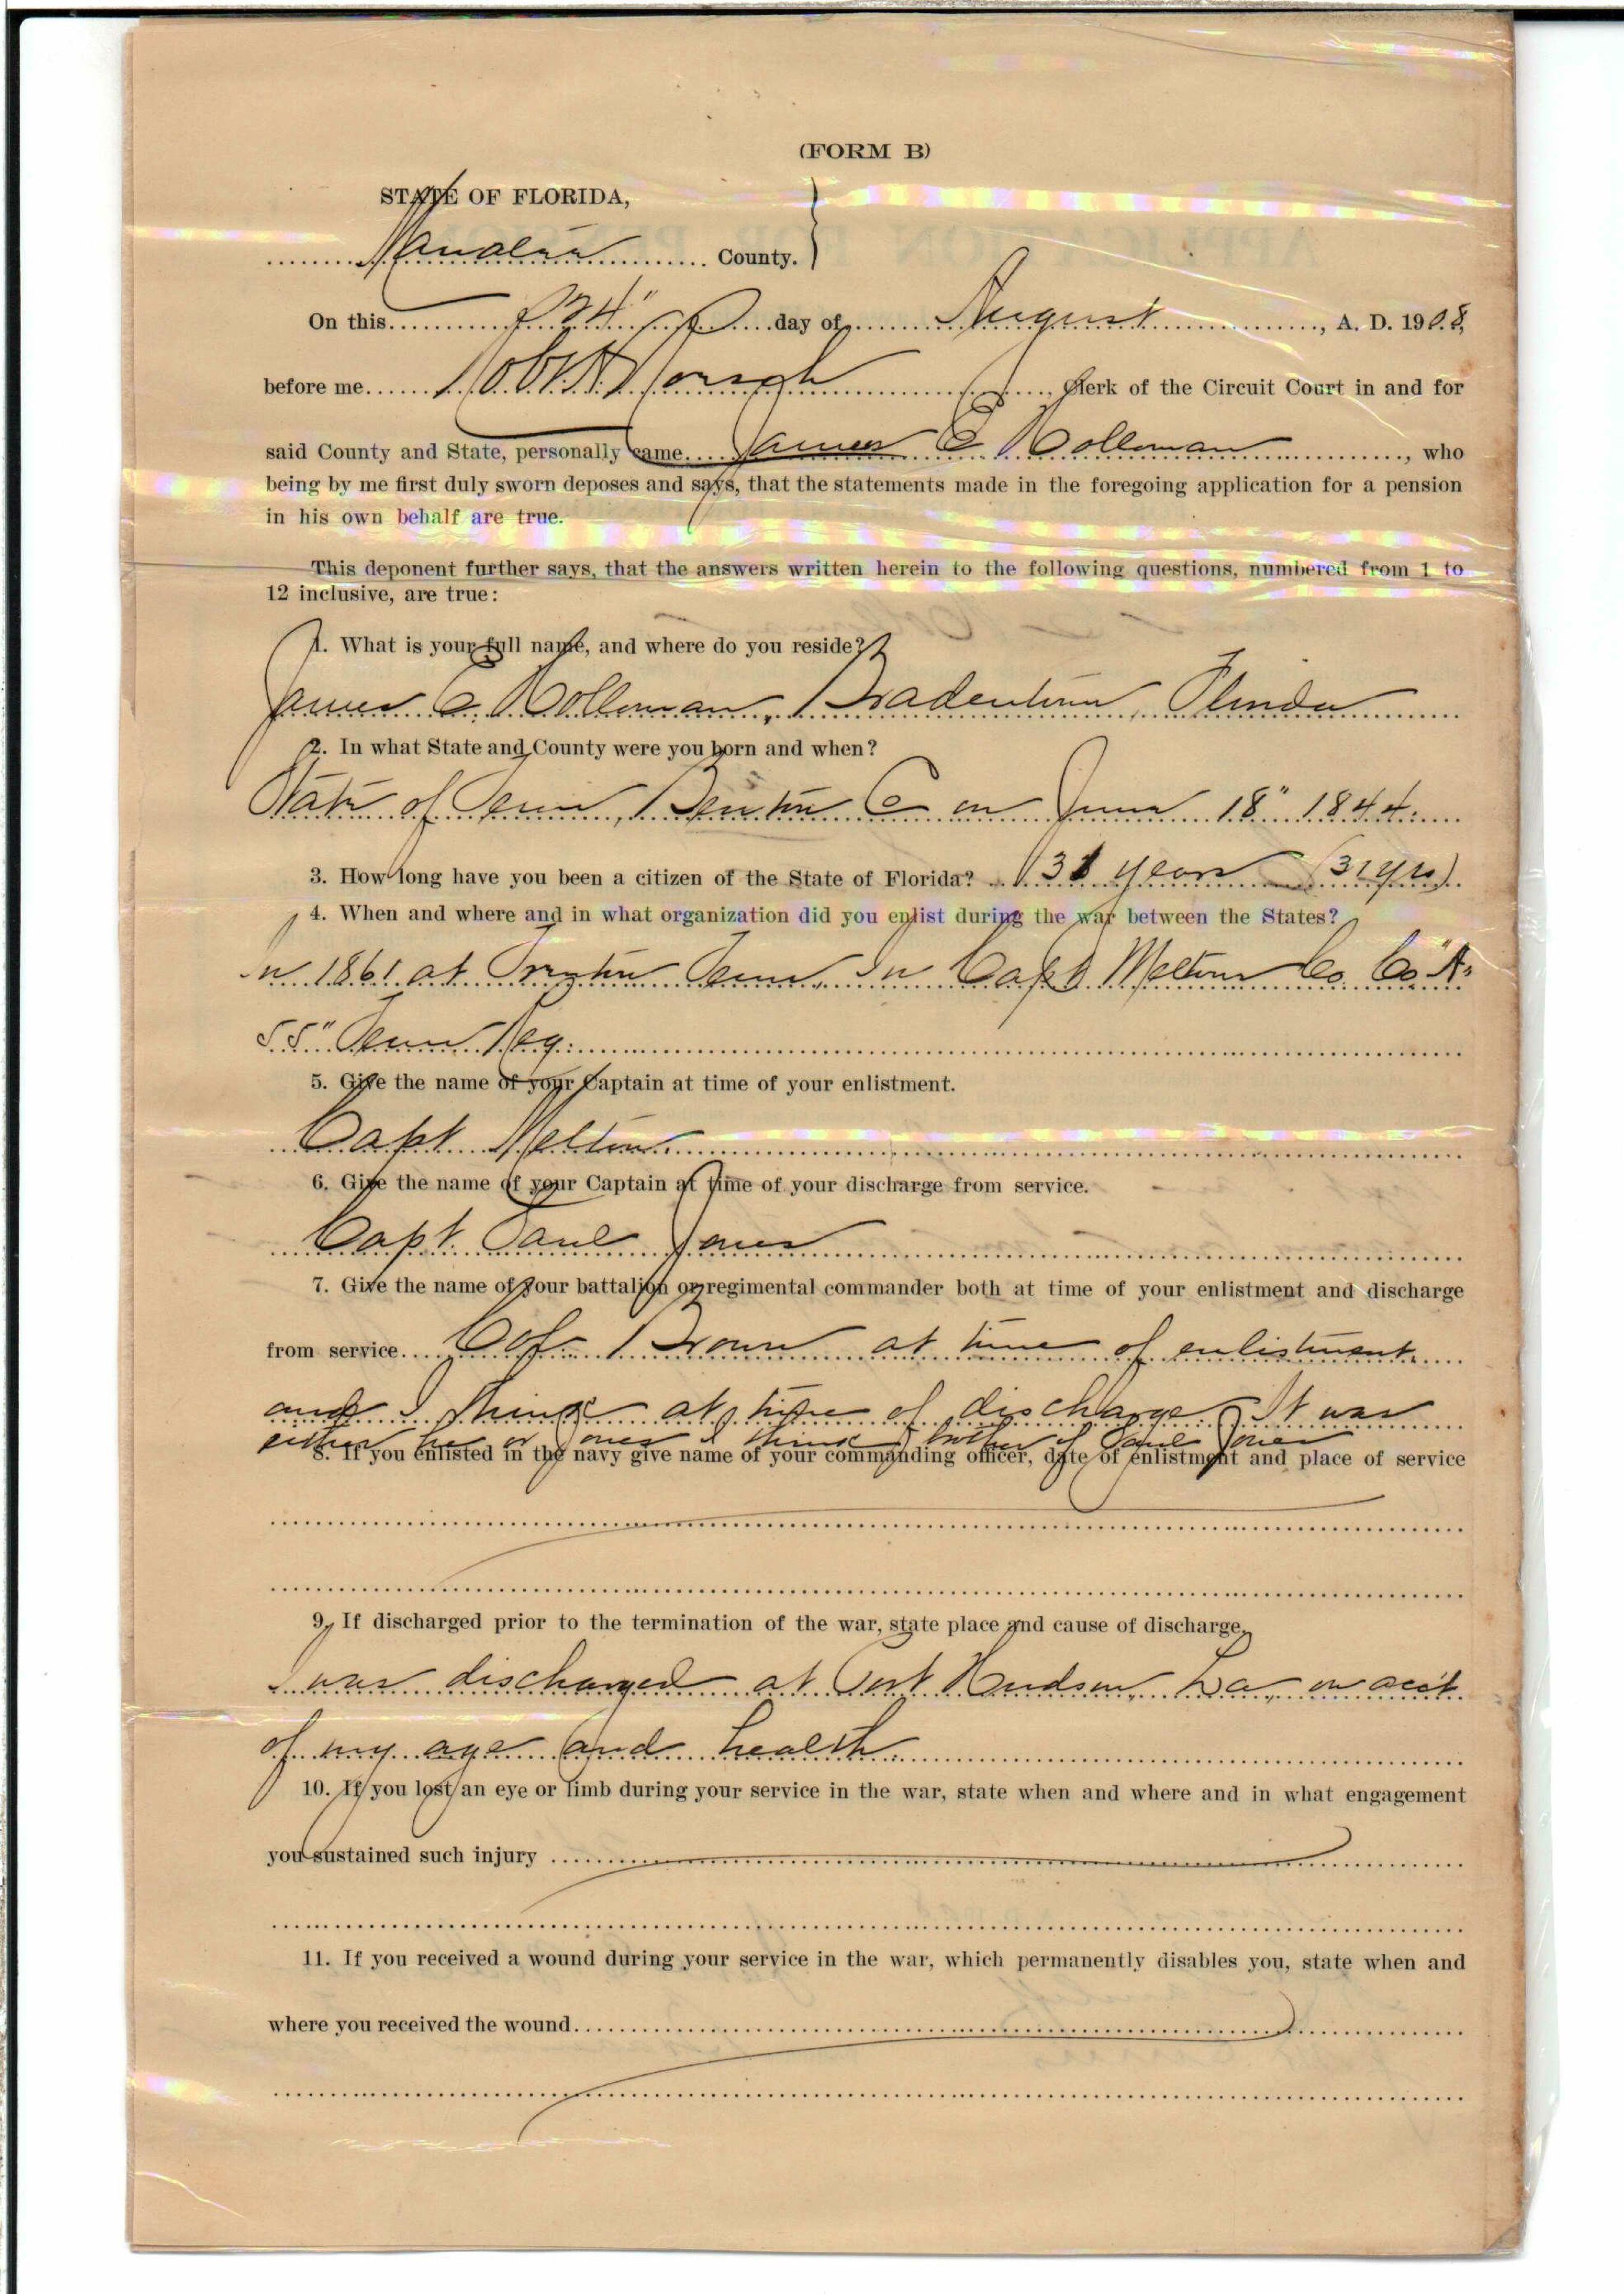 (FORM B)
STATE OF FLORIDA,
Manatee County.
On this 24" day of August, A. D. 1908,
before me Robt H Roesch, Clerk of the Circuit Court in and for
said County and State, personally came James E Holloman, who
being by me first duly sworn deposes and says, that the statements made in the foregoing application for a pension
in his own behalf are true.
This deponent further says, that the answers written herein to the following questions, numbered from 1 to
12 inclusive, are true:
1. What is your full name, and where do you reside?
James E. Holloman, Bradentown, Florida
2. In what State and County were you born and when?
State of Tenn, Benton Co on June 18" 1844.
3. How long have you been a citizen of the State of Florida? 31 years (31 yrs)
4. When and where and in what organization did you enlist during the war between the States?
In 1861 at Trenton Tenn, In Capt Meltons Co. Co "A"
55" Tenn Reg.
5. Give the name of your Captain at time of your enlistment.
Capt. Melton.
6. Give the name of your Captain at time of your discharge from service.
Capt. Paul Jones
7. Give the name of your battalion or regimental commander both at time of your enlistment and discharge
from service. Col. Brown at time of enlistment
and I think at time of discharge. It was
either he or Jones I think, brother of Paul Jones
8. If you enlisted in the navy give name of your commanding officer, date of enlistment and place of service
9. If discharged prior to the termination of the war, state place and cause of discharge.
I was discharged at Port Hudson, La, on acct.
of my age and health.
10. If you lost an eye or limb during your service in the war, state when and where and in what engagement
you sustained such injury
11. If you received a wound during your service in the war, which permanently disables you, state when and
where you received the wound